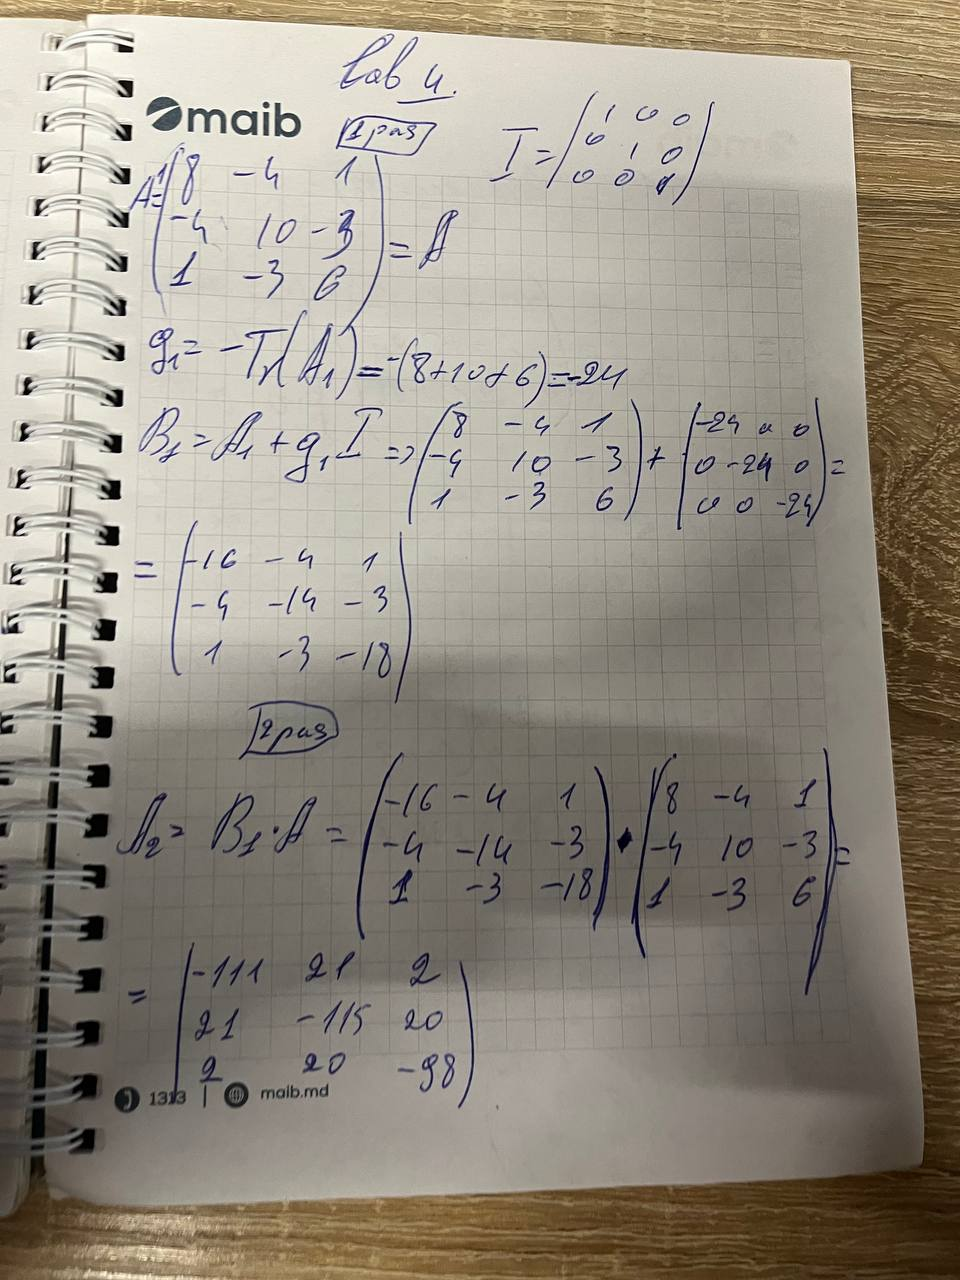 Lab 4.
maib
1 pas
I = (1 0 0
0 1 0
0 0 1)
A₁ = (8 -4 1
-4 10 -3
1 -3 6) = A
g₁ = -Tr(A₁) = -(8+10+6) = -24
B₁ = A₁ + g₁I => (8 -4 1
-4 10 -3
1 -3 6) + (-24 0 0
0 -24 0
0 0 -24) =
= (-16 -4 1
-4 -14 -3
1 -3 -18)
2 pas
A₂ = B₁·A = (-16 -4 1
-4 -14 -3
1 -3 -18) · (8 -4 1
-4 10 -3
1 -3 6) =
= (-111 21 2
21 -115 20
2 20 -98)
1313 | maib.md